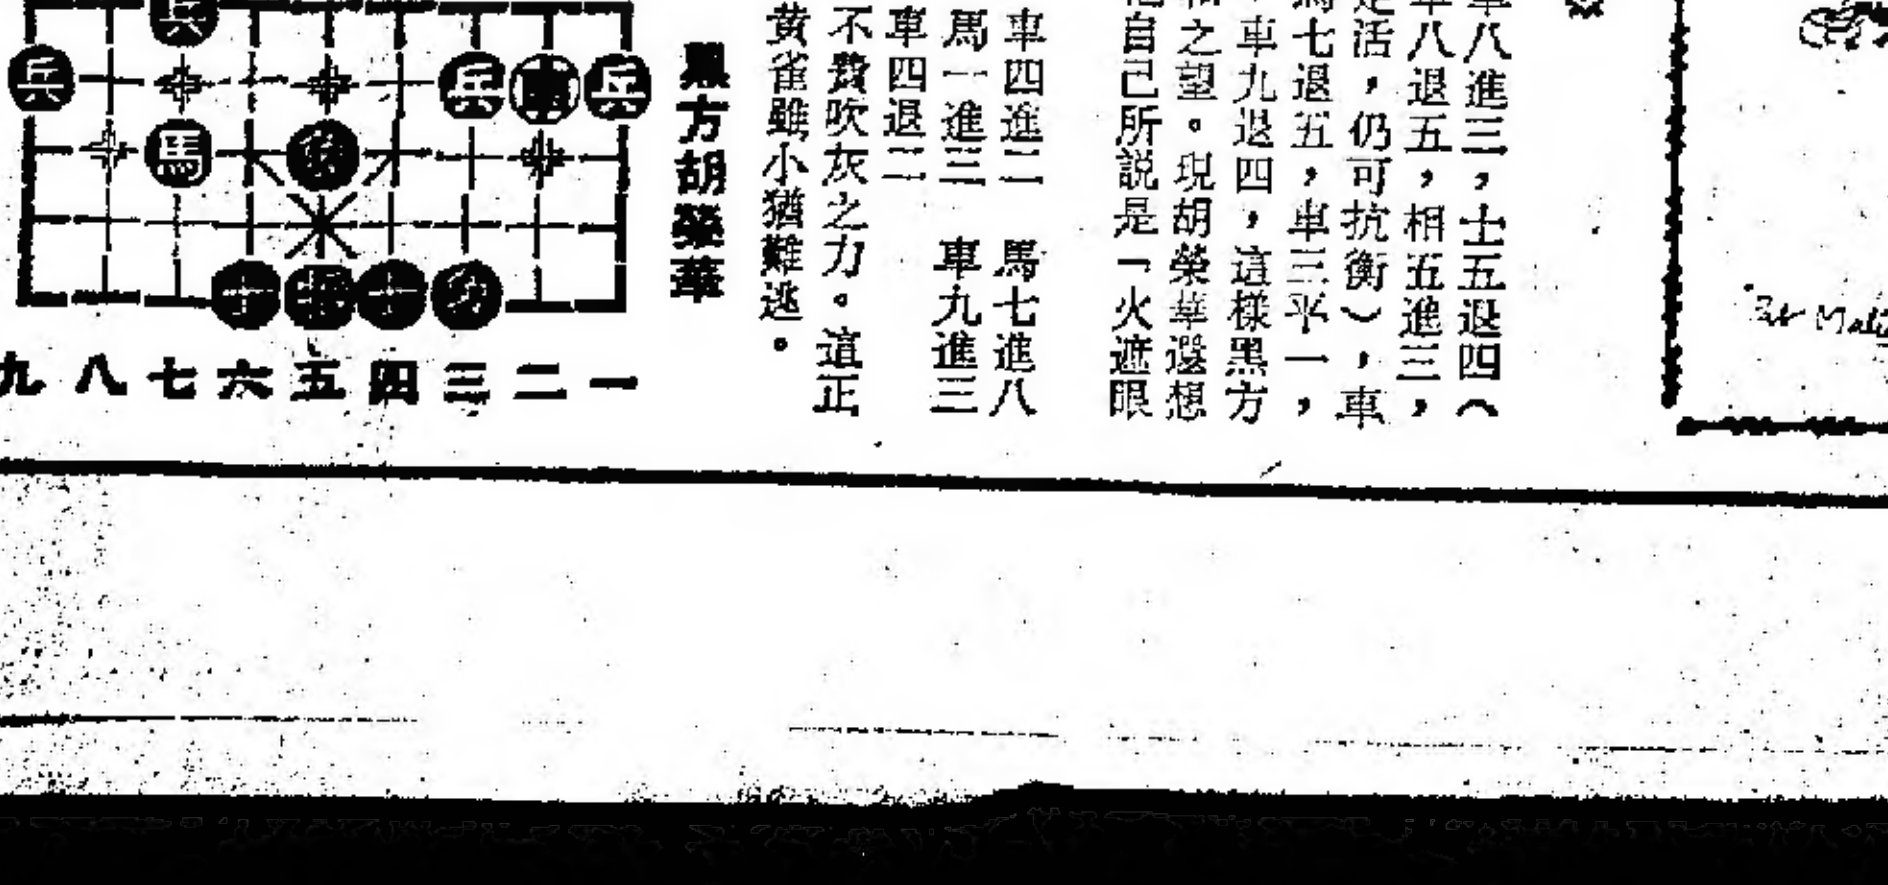 車八進三，士五退四（
車八退五，相五進三，
是活，仍可抗衡），車
馬七退五，車三平一，
，車九退四，這樣黑方
和之望。現胡榮華還想
他自己所説是「火遮眼
車四進二　馬七進八
馬一進三　車九進三
車四退二
不費吹灰之力。這正
黄雀雖小猶難逃。
黑方胡榮華
兵
兵　兵　兵
馬
士　士
九 八 七 六 五 四 三 二 一